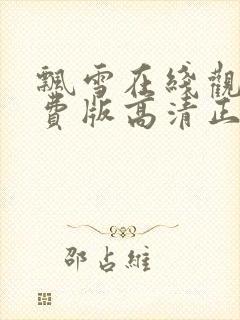 飄雪在綫觀
費版高清正
邵占維